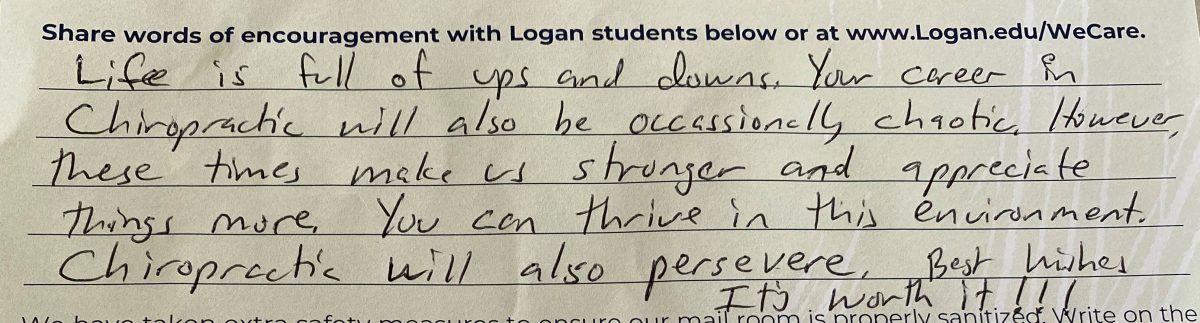 Share words of encouragement with Logan students below or at www.Logan.edu/WeCare.
Life is full of ups and downs. Your career in
Chiropractic will also be occassionally chaotic. However,
these times make us stronger and appreciate
things more. You can thrive in this environment.
Chiropractic will also persevere. Best wishes
It's worth it!!!
We have taken extra safety measures to ensure our mail room is properly sanitized. Write on the